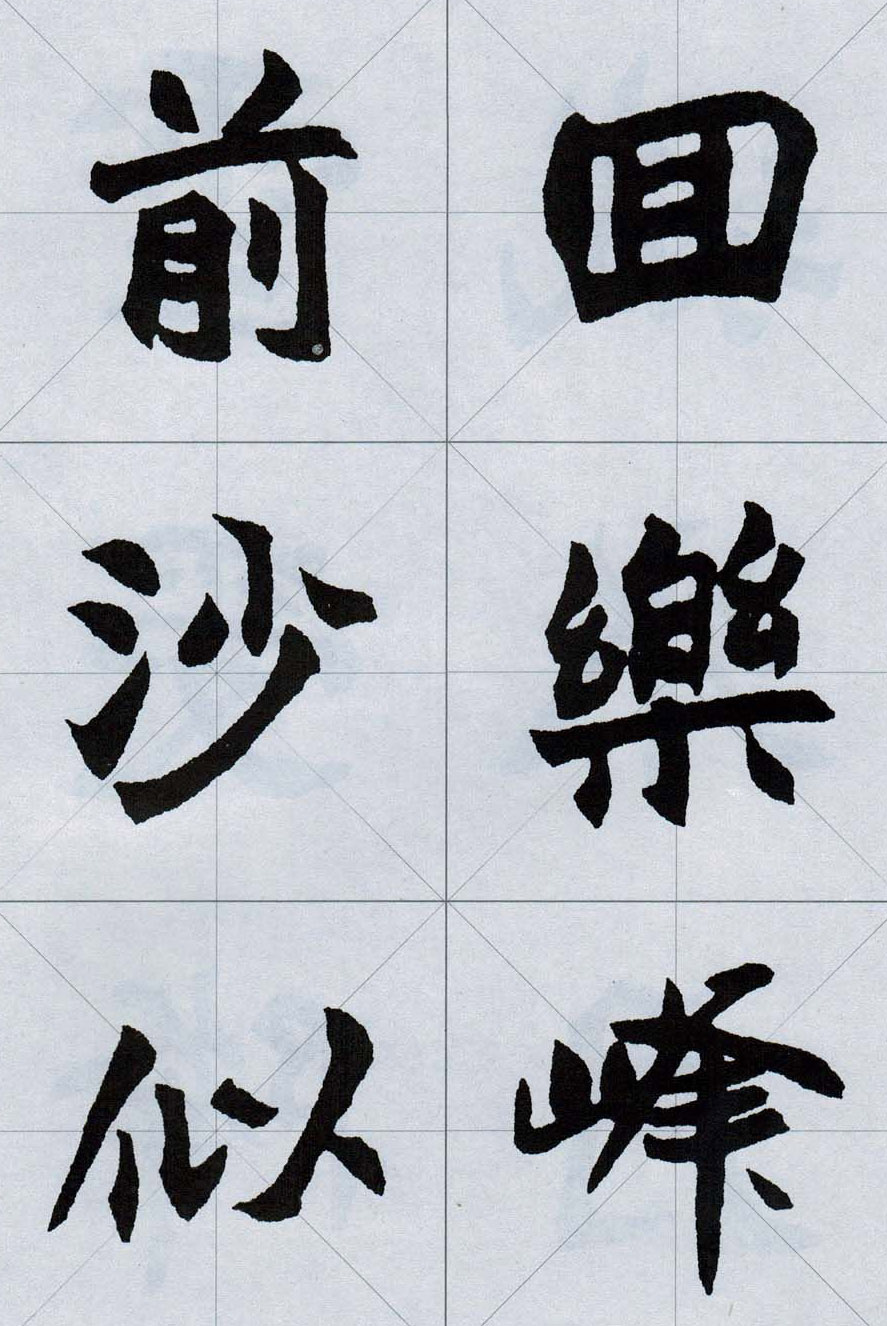 回樂峰
前沙似